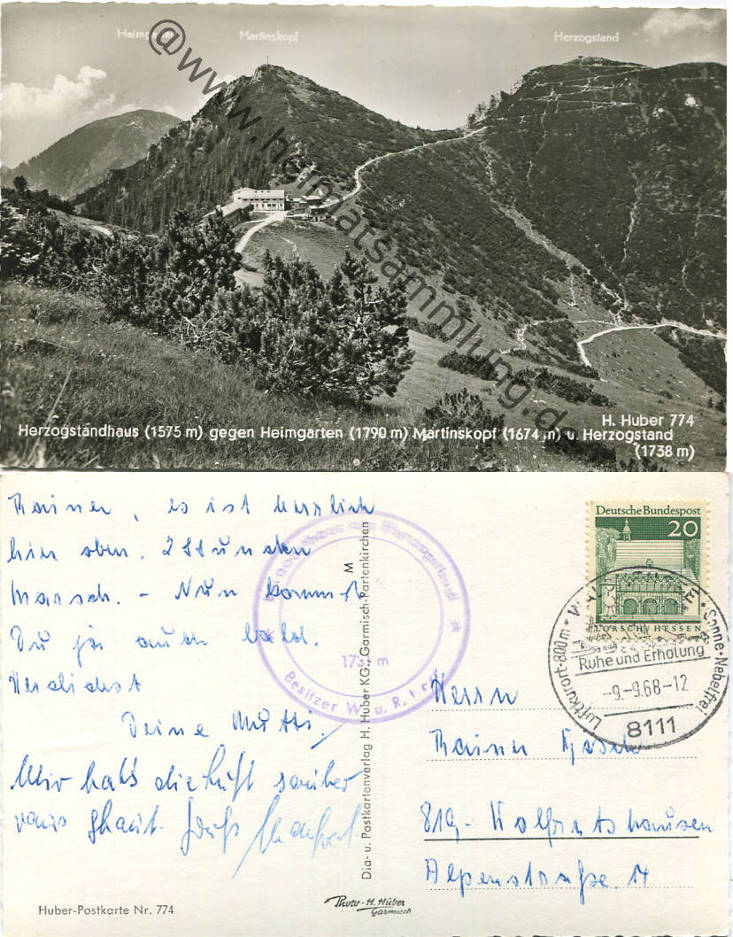 Heimgarten Martinskopf Herzogstand
@www.heimatsammlung.de
H. Huber 774
Herzogstandhaus (1575 m) gegen Heimgarten (1790 m) Martinskopf (1674 m) u. Herzogstand
(1738 m)
Rainer, es ist herrlich
hier oben. 2 Stunden
Marsch. - Nun kommst
Du ja auch bald.
Herzlichst
Deine Mutti.
Mir hat's die Luft sauber
Herzogstand
1731 m
Besitzer W. u. R.
M
Dia- u. Postkartenverlag H. Huber KG, Garmisch-Partenkirchen
Deutsche Bundespost
20
LORSCH/HESSEN
Luftkurort · 800 m · Sonne · Nebelfrei
Ruhe und Erholung
-9.-9.68-12
8111
Herrn
Rainer
819 - Wolfratshausen
Alpenstraße 14
Huber-Postkarte Nr. 774
Photo-H. Huber
Garmisch